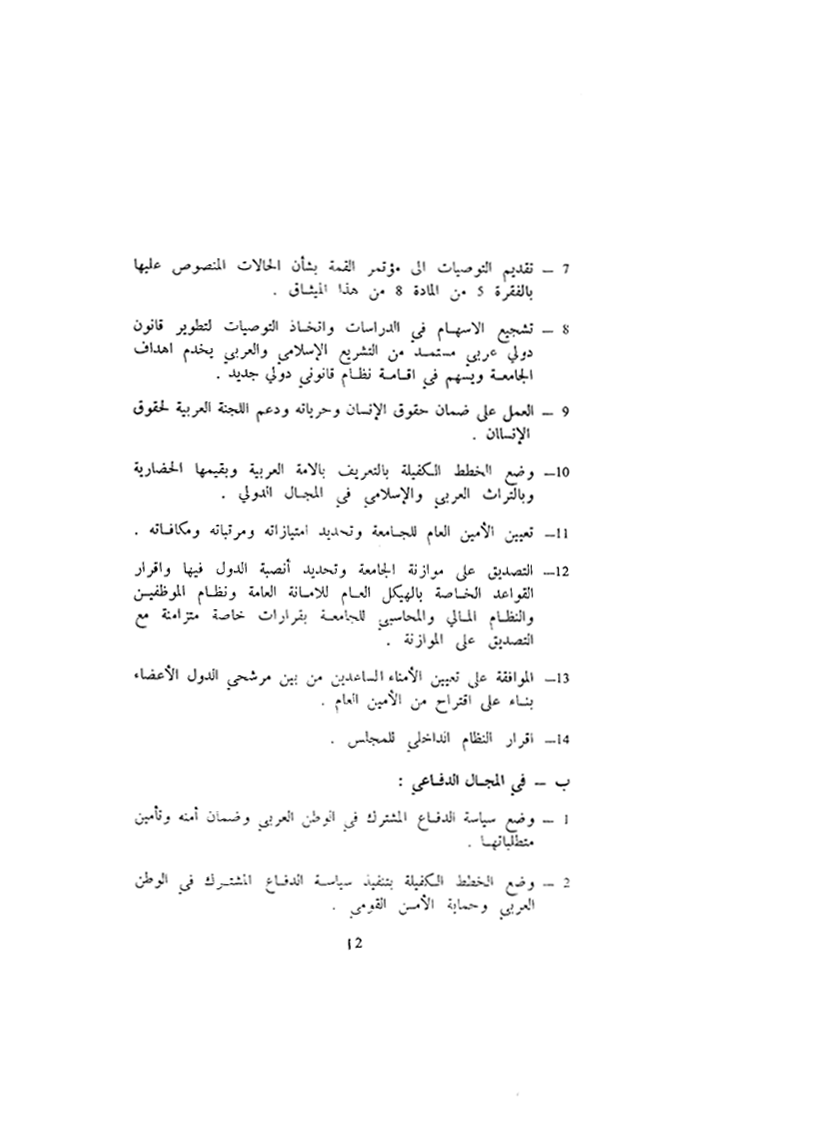 7 — تقديم التوصيات الى مؤتمر القمة بشأن الحالات المنصوص عليها
بالفقرة 5 من المادة 8 من هذا الميثاق .
8 — تشجيع الاسهام في الدراسات واتخاذ التوصيات لتطوير قانون
دولي عربي مستمد من التشريع الإسلامي والعربي يخدم اهداف
الجامعة ويسهم في اقامة نظام قانوني دولي جديد .
9 — العمل على ضمان حقوق الإنسان وحرياته ودعم اللجنة العربية لحقوق
الإنساان .
10— وضع الخطط الكفيلة بالتعريف بالامة العربية وبقيمها الحضارية
وبالتراث العربي والإسلامي في المجال الدولي .
11— تعيين الأمين العام للجامعة وتحديد امتيازاته ومرتباته ومكافاته .
12— التصديق على موازنة الجامعة وتحديد أنصبة الدول فيها واقرار
القواعد الخاصة بالهيكل العام للامانة العامة ونظام الموظفين
والنظام المالي والمحاسبي للجامعة بقرارات خاصة متزامنة مع
التصديق على الموازنة .
13— الموافقة على تعيين الأمناء الساعدين من بين مرشحي الدول الأعضاء
بناء على اقتراح من الأمين العام .
14— اقرار النظام الداخلي للمجلس .
ب — في المجال الدفاعي :
1 — وضع سياسة الدفاع المشترك في الوطن العربي وضمان أمنه وتأمين
متطلباتها .
2 — وضع الخطط الكفيلة بتنفيذ سياسة الدفاع المشترك في الوطن
العربي وحماية الأمن القومي .
12